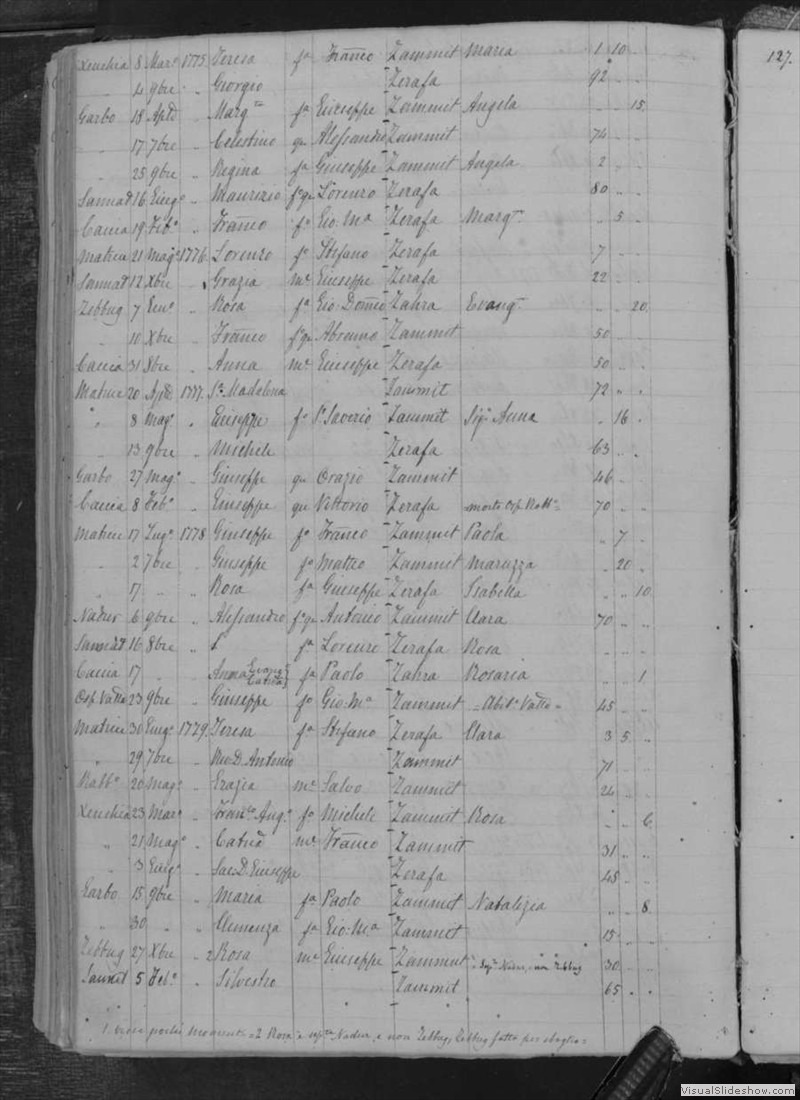 127.
Xeuchia 8 Marº 1775 Teresa fª Franco Zammit Maria 1 10
" 4 9bre " Giorgio Zerafa 92
Garbo 18 Aple " Margta fª Giuseppe Zammit Angela 15
" 17 7bre " Celestino qu Alessandro Zammit 74
" 25 9bre " Regina fª Giuseppe Zammit Angela 2
Sannat 16 Giugº " Maurizio fº qu Lorenzo Zerafa 80
Caccia 19 Febº " Franco fº Gio. Mª Zerafa Margta 5
Matrice 21 Magº 1776 Lorenzo fº Stefano Zerafa 7
Sannat 12 Xbre " Grazia me Giuseppe Zerafa 22
Zebbug 7 Genº " Rosa fª Gio Domco Zahra Evangta 20
" 10 Xbre " Franco fº qu Abramo Zammit 50
Caccia 31 8bre " Anna me Giuseppe Zerafa 50
Matrice 20 Aple 1777 Sr Madalena Zammit 72
" 8 Magº " Giuseppe fº Pº Saverio Zammit Anna 16
" 13 9bre " Michele Zerafa 63
Garbo 27 Magº " Giuseppe qu Orazio Zammit 46
Caccia 8 Febº " Giuseppe qu Vittorio Zerafa morto Osp Rabbº 70
Matrice 17 Lugº 1778 Giuseppe fº Franco Zammit Paola 7
" 2 7bre " Giuseppe fº Matteo Zammit Maruzza 20
" 17 " " Rosa fª Giuseppe Zerafa Isabella 10
Nadur 6 9bre " Alessandro fº qu Antonio Zammit Clara 70
Sannat 16 8bre " fª Lorenzo Zerafa Rosa
Caccia 17 " Anna Evangta Catna fª Paolo Zahra Rosaria 1
Osp Vatta 23 9bre " Giuseppe fº Gio: Mª Zammit Abitº Vatta 45
Matrice 30 Giugº 1779 Teresa fª Stefano Zerafa Clara 3 5
" 29 7bre " Rev. D. Antonio Zammit 71
Rabbº 20 Magº " Grazia me Salvo Zammit 24
Xeuchia 23 Marº " Franco Angº fº Michele Zammit Rosa 6
" 21 Magº " Catna me Franco Zammit 31
" 3 Giugº " Sac. D. Giuseppe Zerafa 45
Garbo 15 9bre " Maria fª Paolo Zammit Natalizia 8
" 30 " " Clemenza fª Gio: Mª Zammit 15
Zebbug 27 Xbre " 2 Rosa me Giuseppe Zammit Nadur, e non Zebbug 30
Sannat 5 Febº " Silvestro Zammit 65
1 visse pochi momenti = 2 Rosa è Nadur, e non Zebbug, Zebbug fatto per sbaglio =
VisualSlideshow.com